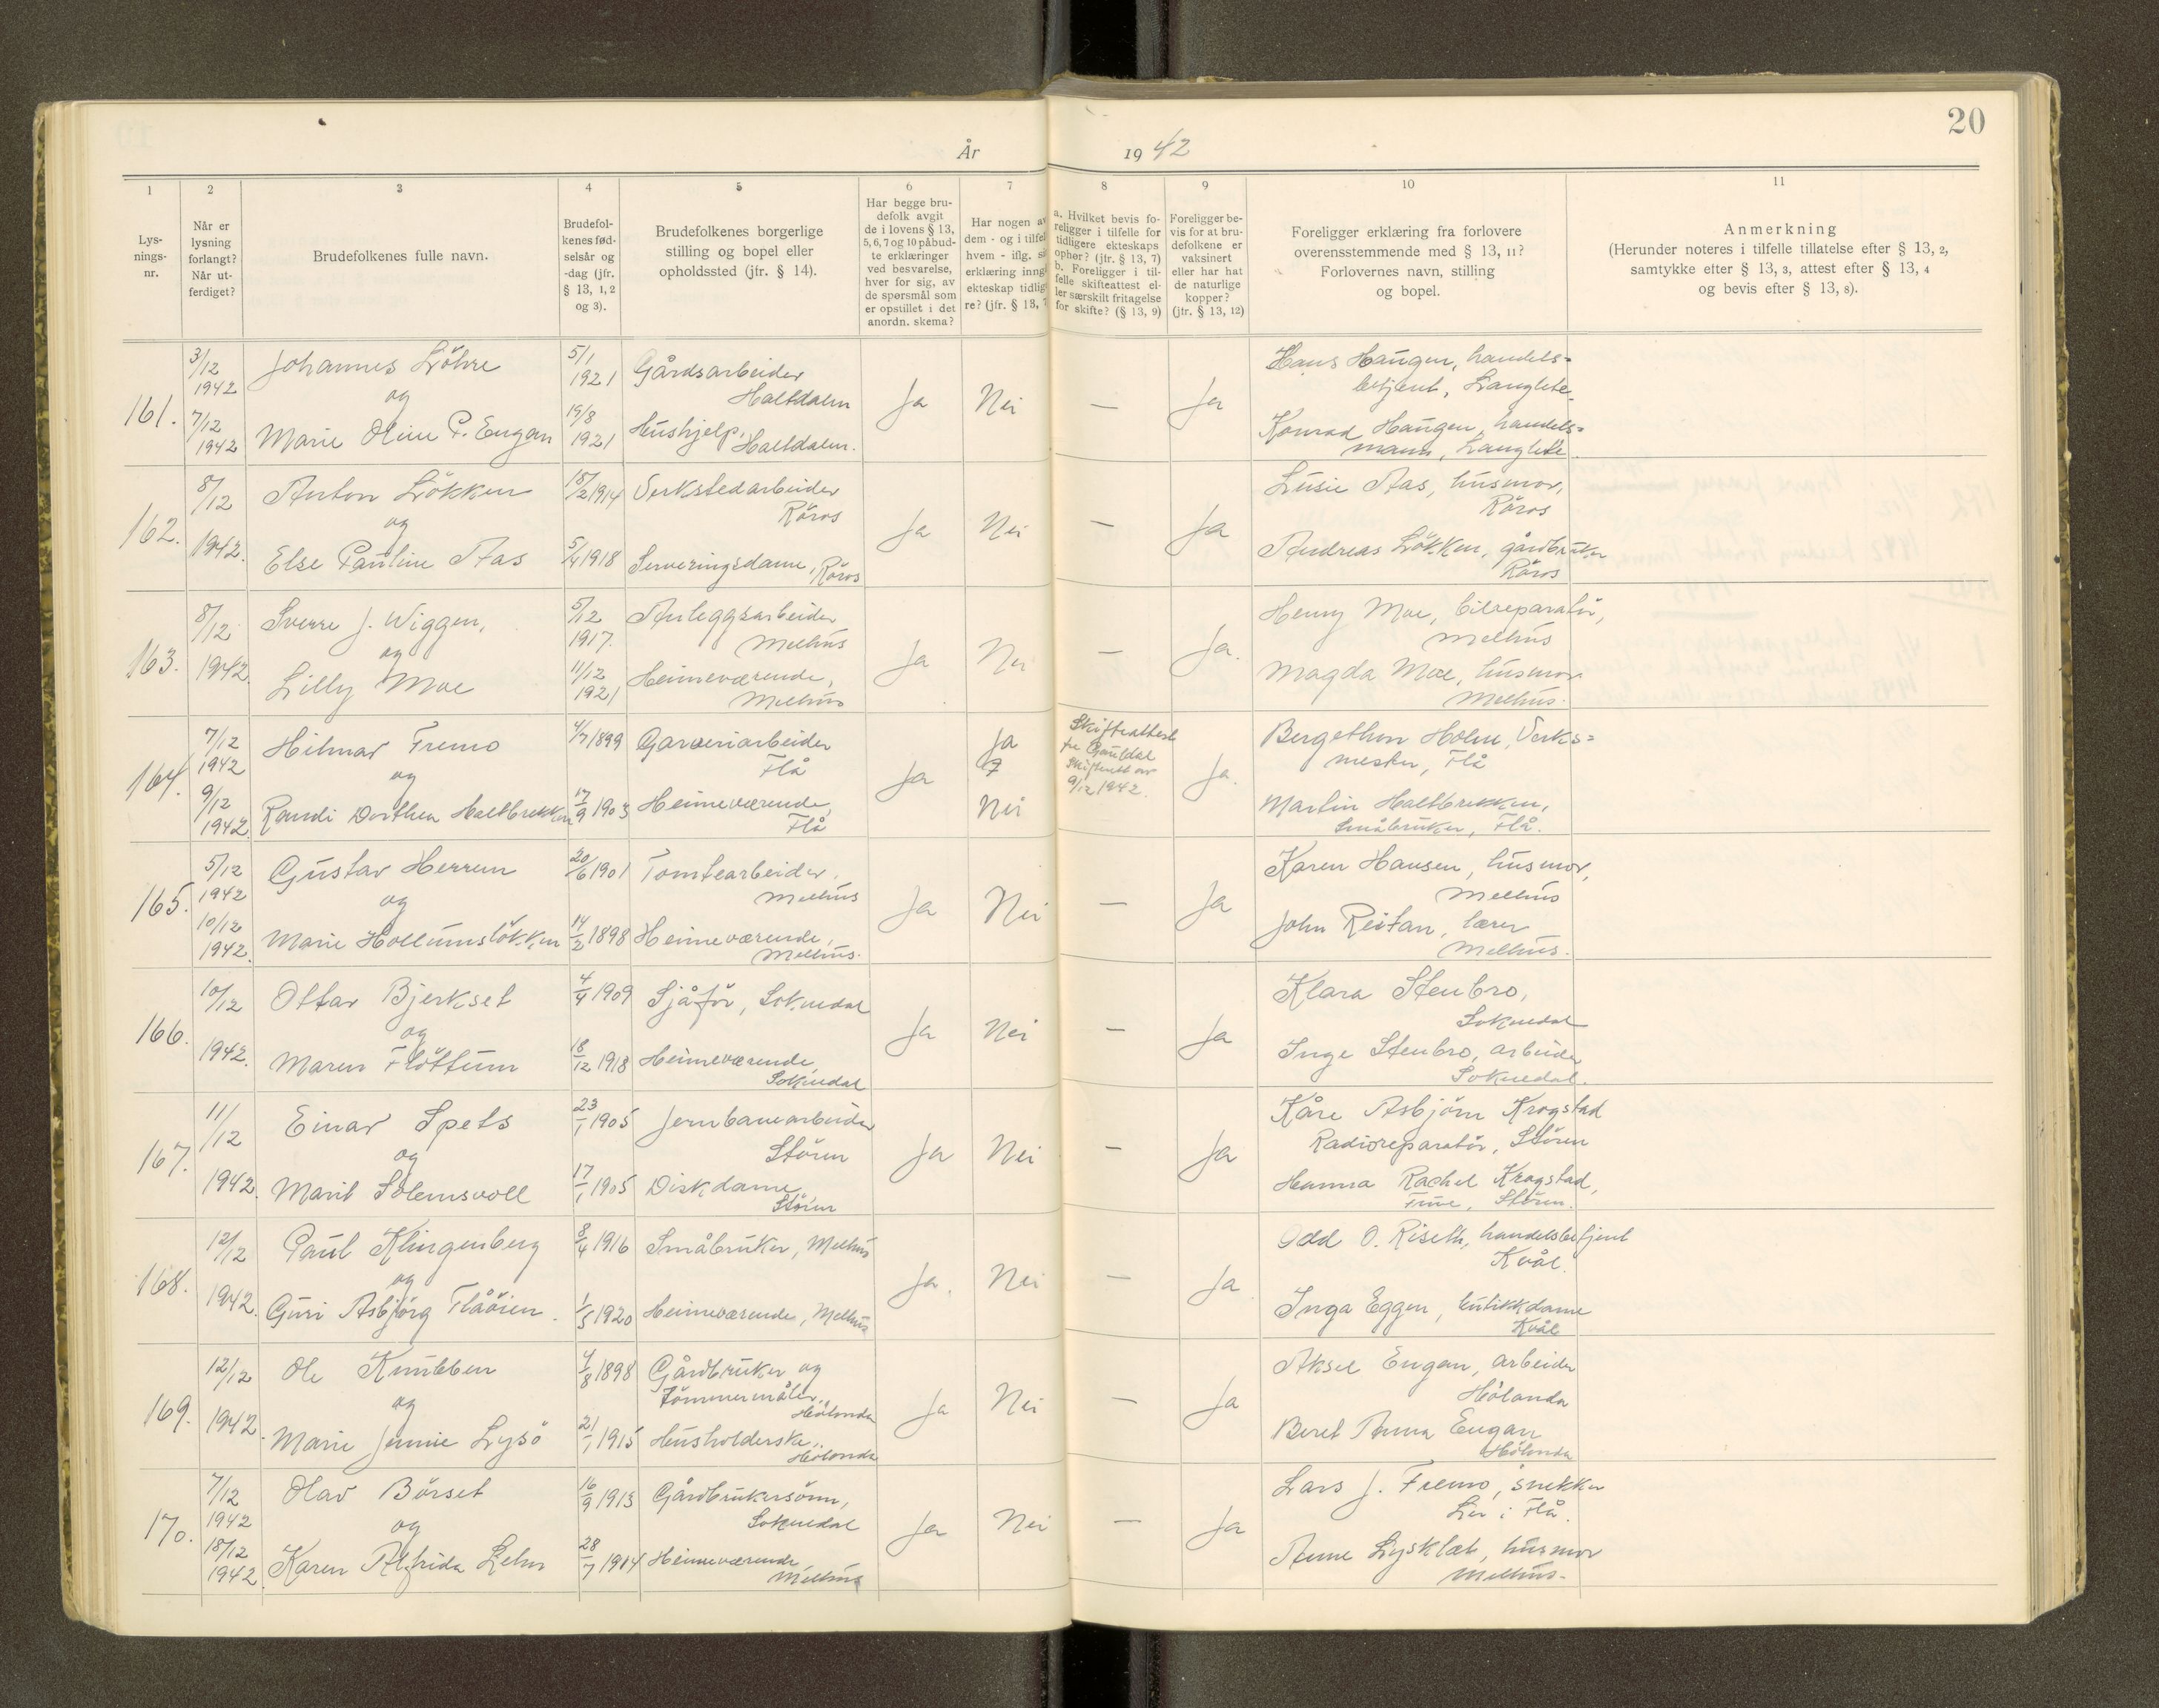 20
År 1942
1 2 3 4 5 6 7 8 9 10 11
Lys-
nings-
nr.
Når er
lysning
forlangt?
Når ut-
ferdiget?
Brudefolkenes fulle navn.
Brudefol-
kenes fød-
selsår og
-dag (jfr.
§ 13, 1, 2
og 3).
Brudefolkenes borgerlige
stilling og bopel eller
opholdssted (jfr. § 14).
Har begge bru-
defolk avgit
de i lovens § 13,
5, 6, 7 og 10 påbud-
te erklæringer
ved besvarelse,
hver for sig, av
de spørsmål som
er opstillet i det
anordn. skema?
Har nogen av
dem - og i tilfel
hvem - iflg. s
erklæring inng
ekteskap tidlig
re? (jfr. § 13, 7
a. Hvilket bevis fo-
religger i tilfelle for
tidligere ekteskaps
ophør? (jfr. § 13, 7)
b. Foreligger i til-
felle skifteattest el-
ler særskilt fritagelse
for skifte? (§ 13, 9)
Foreligger be-
vis for at bru-
defolkene er
vaksinert
eller har hat
de naturlige
kopper?
(jfr. § 13, 12)
Foreligger erklæring fra forlovere
overensstemmende med § 13, 11?
Forlovernes navn, stilling
og bopel.
Anmerkning
(Herunder noteres i tilfelle tillatelse efter § 13, 2,
samtykke efter § 13, 3, attest efter § 13, 4
og bevis efter § 13, 8).
161.
3/12
1942
7/12
1942
Johannes Löhre
og
Marie Oline P. Engan
5/1
1921
19/8
1921
Gårdsarbeider
Haltdalen
Hushjelp,
Haltdalen.
Ja Nei — Ja
Hans Haugen, handels=
betjent, Langlete.
Konrad Haugen, handels=
mann, Langlete.
162.
8/12
1942.
Anton Lökken
og
Else Pauline Aas
18/2 1914
5/4 1918
Verkstedarbeider
Röros
Serveringsdame, Röros
Ja Nei — Ja
Lusie Aas, husmor,
Röros
Andreas Lökken, gårdbruker
Röros
163.
8/12
1942.
Sverre J. Wiggen,
og
Lilly Moe
5/12
1917.
11/12
1921
Anleggsarbeider
Melhus
Heimeværende,
Melhus
Ja Nei — Ja.
Henry Moe, bilreparatör,
Melhus
Magda Moe, husmor
Melhus.
164.
7/12
1942
9/12
1942
Hilmar Fremo
og
Randi Dorthea Haltbrekken
4/7 1899
17/9 1903
Garveriarbeider
Flå
Heimeværende,
Flå
Ja
Ja
Nei
Skifteattest
fra Gauldal
skifterett av
9/12 1942.
Ja.
Bergethon Holm, Verks=
mester, Flå
Martin Haltbrekken,
Småbruker, Flå.
165.
5/12
1942
10/12
1942
Gustav Herrem
og
Marie Hollumslökken
20/6 1901
14/2 1898
Tomtearbeider,
Melhus
Heimeværende,
Melhus.
Ja Nei — Ja
Karen Hansen, husmor,
Melhus
John Reitan, lærer
Melhus.
166.
10/12
1942.
Ottar Bjerkset
og
Maren Flöttum
4/4 1909
18/12 1918
Sjåför, Soknedal
Heimeværende,
Soknedal
Ja Nei — Ja
Klara Stenbro,
Soknedal
Inge Stenbro, arbeider
Soknedal.
167.
11/12
1942.
Einar Spets
og
Marit Solemsvoll
23/1 1905
17/1 1905
Jernbanearbeider
Stören
Diskdame
Stören
Ja Nei — Ja
Kåre Asbjörn Krogstad
Radioreparatör, Stören
Hanna Rachel Krogstad,
Frue, Stören.
168.
12/12
1942.
Paul Klingenberg
og
Guri Asbjörg Flåöien.
8/4 1916
1/5 1920
Småbruker, Melhus
Heimeværende, Melhus
Ja. Nei — Ja
Odd O. Riseth, handelsbetjent
Kvål.
Inga Eggen, butikkdame
Kvål
169.
12/12
1942.
Ole Knubben
og
Marie Jennie Lysö
4/8 1898
21/1 1915
Gårdbruker og
Tömmermåler,
Hölonda
Husholderske,
Hölonda
Ja Nei — Ja
Aksel Engan, arbeider
Hölonda
Beret Anna Engan
Hölonda
170.
7/12
1942
18/12
1942.
Olav Börset
og
Karen Alfrida Lehn
16/9 1913
28/7 1914
Gårdbrukersönn,
Soknedal
Heimeværende,
Melhus
Ja Nei — Ja
Lars J. Fremo, snekker
Ler i Flå.
Anne Lysklet, husmor
Melhus.